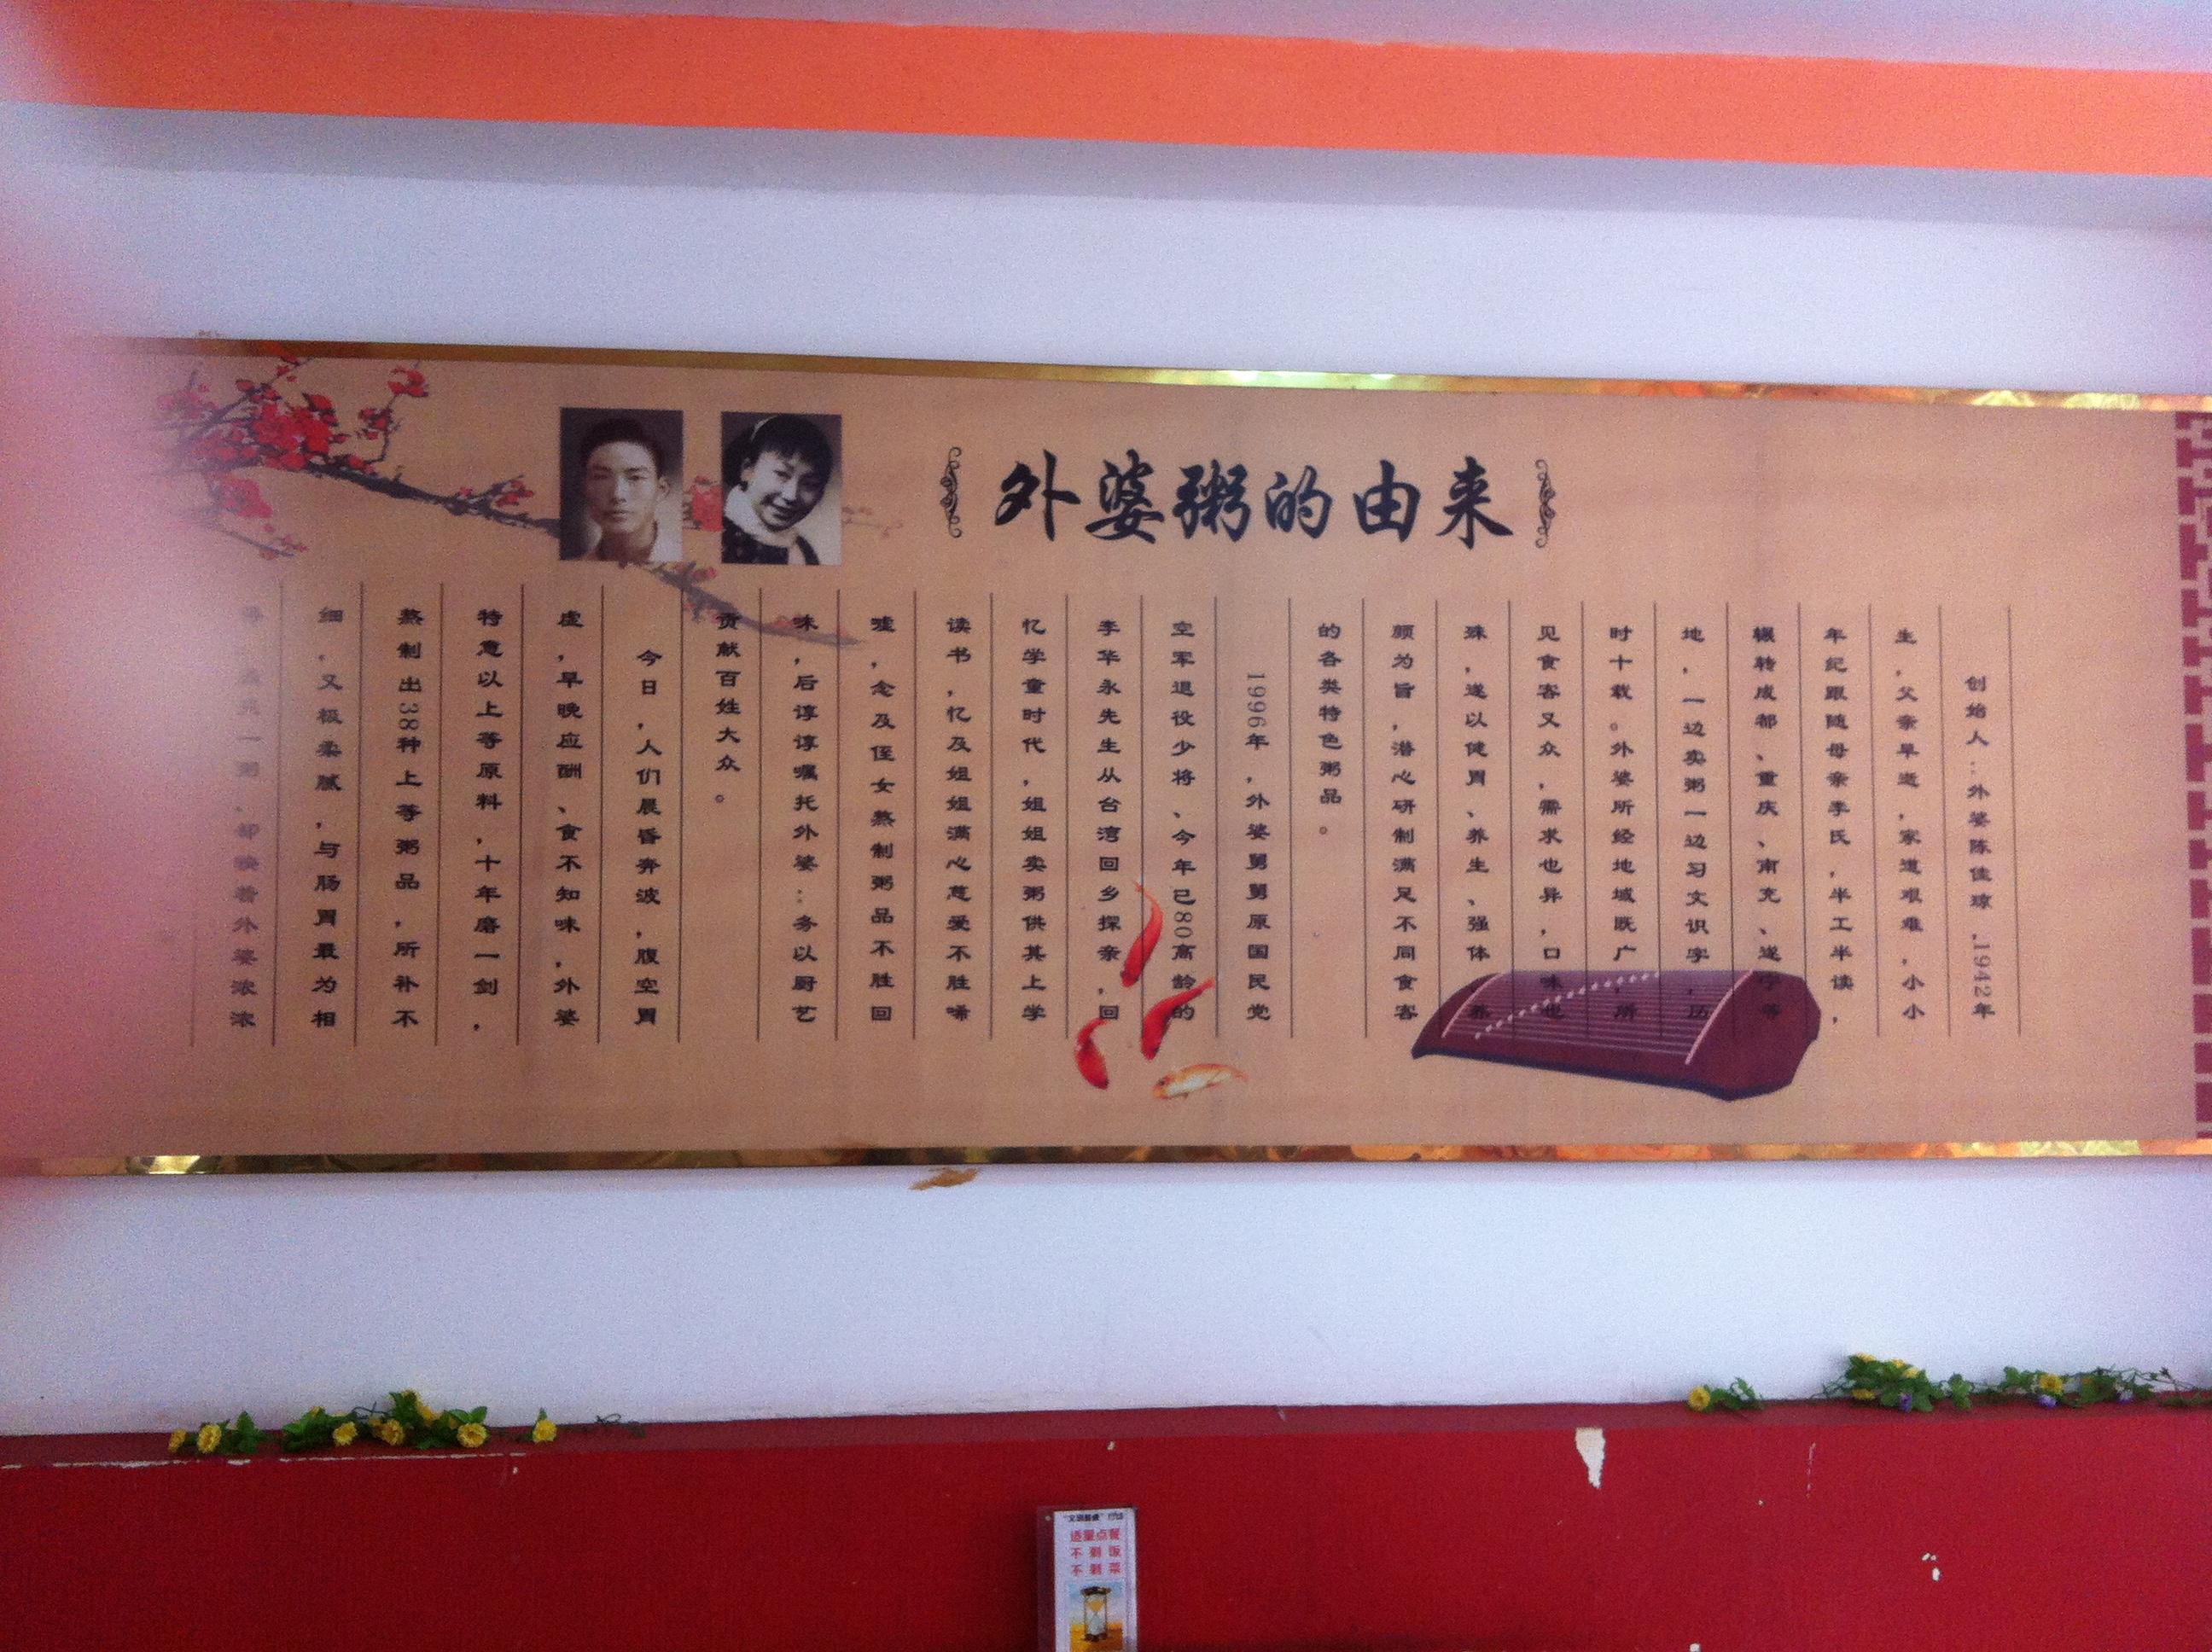 外婆粥的由来
创始人：外婆陈佳琼，1942年
生，父亲早逝，家道艰难，小小
年纪跟随母亲李氏，半工半读，
辗转成都、重庆、南充、遂宁等
地，一边卖粥一边习文识字，历
时十载。外婆所经地域既广，所
见食客又众，需求也异，口味也
殊，遂以健胃、养生、强体、养
颜为旨，潜心研制满足不同食客
的各类特色粥品。
1996年，外婆舅舅原国民党
空军退役少将、今年已80高龄的
李华永先生从台湾回乡探亲，回
忆学童时代，姐姐卖粥供其上学
读书，忆及姐姐满心慈爱不胜唏
嘘，念及侄女熬制粥品不胜回
味，后谆谆嘱托外婆：务以厨艺
贡献百姓大众。
今日，人们晨昏奔波，腹空胃
虚，早晚应酬、食不知味，外婆
特意以上等原料，十年磨一剑，
熬制出38种上等粥品，所补不
细，又极柔腻，与肠胃最为相
一粥，都映着外婆浓浓
适量点餐
不剩饭
不剩菜